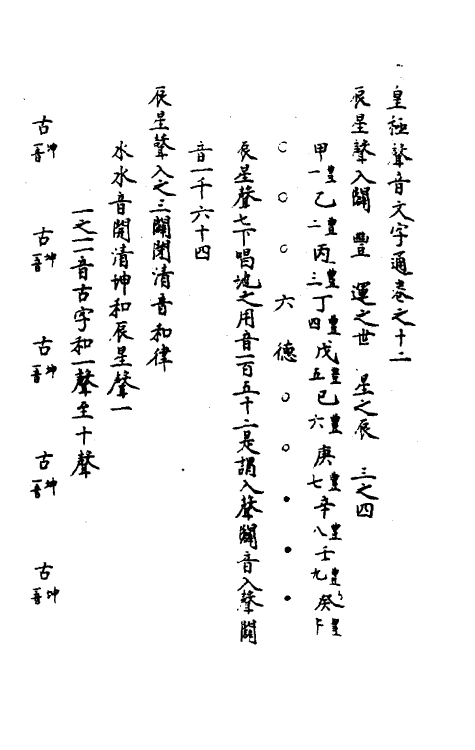 皇極聲音文字通卷之十二
辰星聲入闢 豐 運之世 星之辰 三之四
甲一豐乙二豐丙三豐丁四豐戊五豐己六豐庚七豐辛八豐壬九豐癸十豐
○○○六德○○●●●●
辰星聲七下唱地之用音一百五十二是謂入聲闢音入聲闢
音一千六十四
辰星聲入之三闢閉清音和律
水水音開清坤和辰星聲一
一之一音古字和一聲至十聲
古坤一音 古坤一音 古坤一音 古坤一音 古坤一音